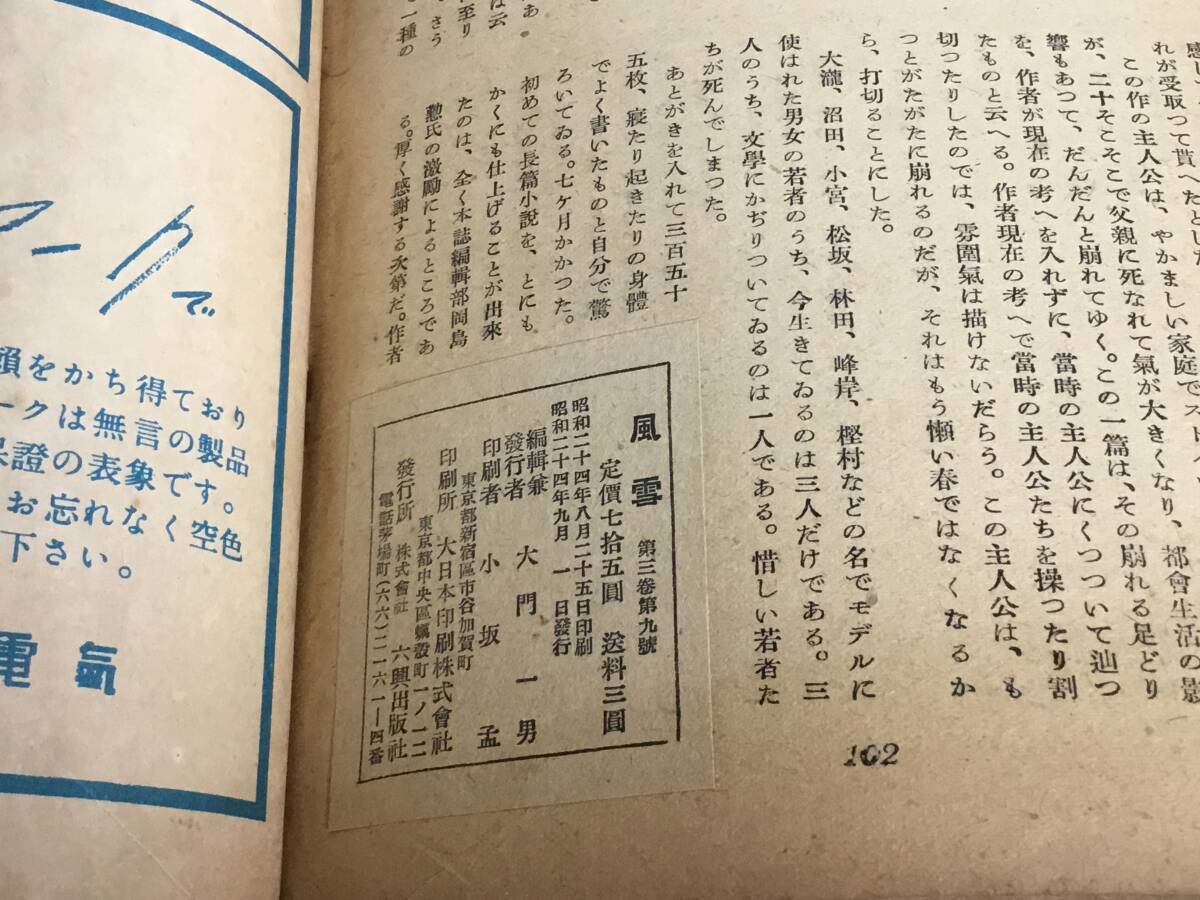 感
れが受取つて貰へたとした
この作の主人公は、やかましい家庭で
が、二十そこそこで父親に死なれて氣が大きくなり、都會生活の影
響もあつて、だんだんと崩れてゆく。この一篇は、その崩れる足どり
を、作者が現在の考へを入れずに、當時の主人公にくつついて辿つ
たものと云へる。作者現在の考へで當時の主人公たちを操つたり割
切つたりしたのでは、雰圍氣は描けないだらう。この主人公は、も
つとがたがたに崩れるのだが、それはもう懶い春ではなくなるか
ら、打切ることにした。
大瀧、沼田、小宮、松坂、林田、峰岸、樫村などの名でモデルに
使はれた男女の若者のうち、今生きてゐるのは三人だけである。三
人のうち、文學にかぢりついてゐるのは一人である。惜しい若者た
ちが死んでしまつた。
あとがきを入れて三百五十
五枚、寢たり起きたりの身體
でよく書いたものと自分で驚
ろいてゐる。七ケ月かかつた。
初めての長篇小説を、とにも
かくにも仕上げることが出來
たのは、全く本誌編輯部岡島
懃氏の激勵によるところであ
る。厚く感謝する次第だ。作者
あ
は云
至り
さう
一種の
風雪 第三卷第九號
定價七拾五圓 送料三圓
昭和二十四年八月二十五日印刷
昭和二十四年九月一日發行
編輯兼發行者 大門一男
印刷者 小坂孟
東京都新宿區市谷加賀町
印刷所 大日本印刷株式會社
東京都中央區蠣殼町一ノ一二
發行所 株式會社 六興出版社
電話茅場町(六六)二一六一—四番
102
マークで
頼をかち得ており
ークは無言の製品
保證の表象です。
お忘れなく空色
下さい。
電氣